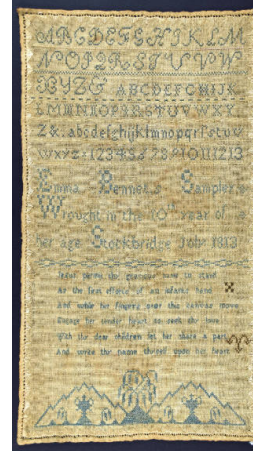 ABCDEFGHIJKLM
NOPQRSTUVW
XYZ& ABCDEFGHIJK
LMNOPQRSTUVWXY
Z&. abcdefghijklmnopqrſstuv
wxyz. 12345678910111213
Emma Bennet's Sampler
Wrought in the 10th year of
her age Stockbridge 1813
Jesus permit thy gracious name to stand
As the first efforts of an infants hand
And while her fingers over this canvas move
Engage her tender heart to seek thy love
With thy dear children let her share a part
And write thy name thyself upon her heart